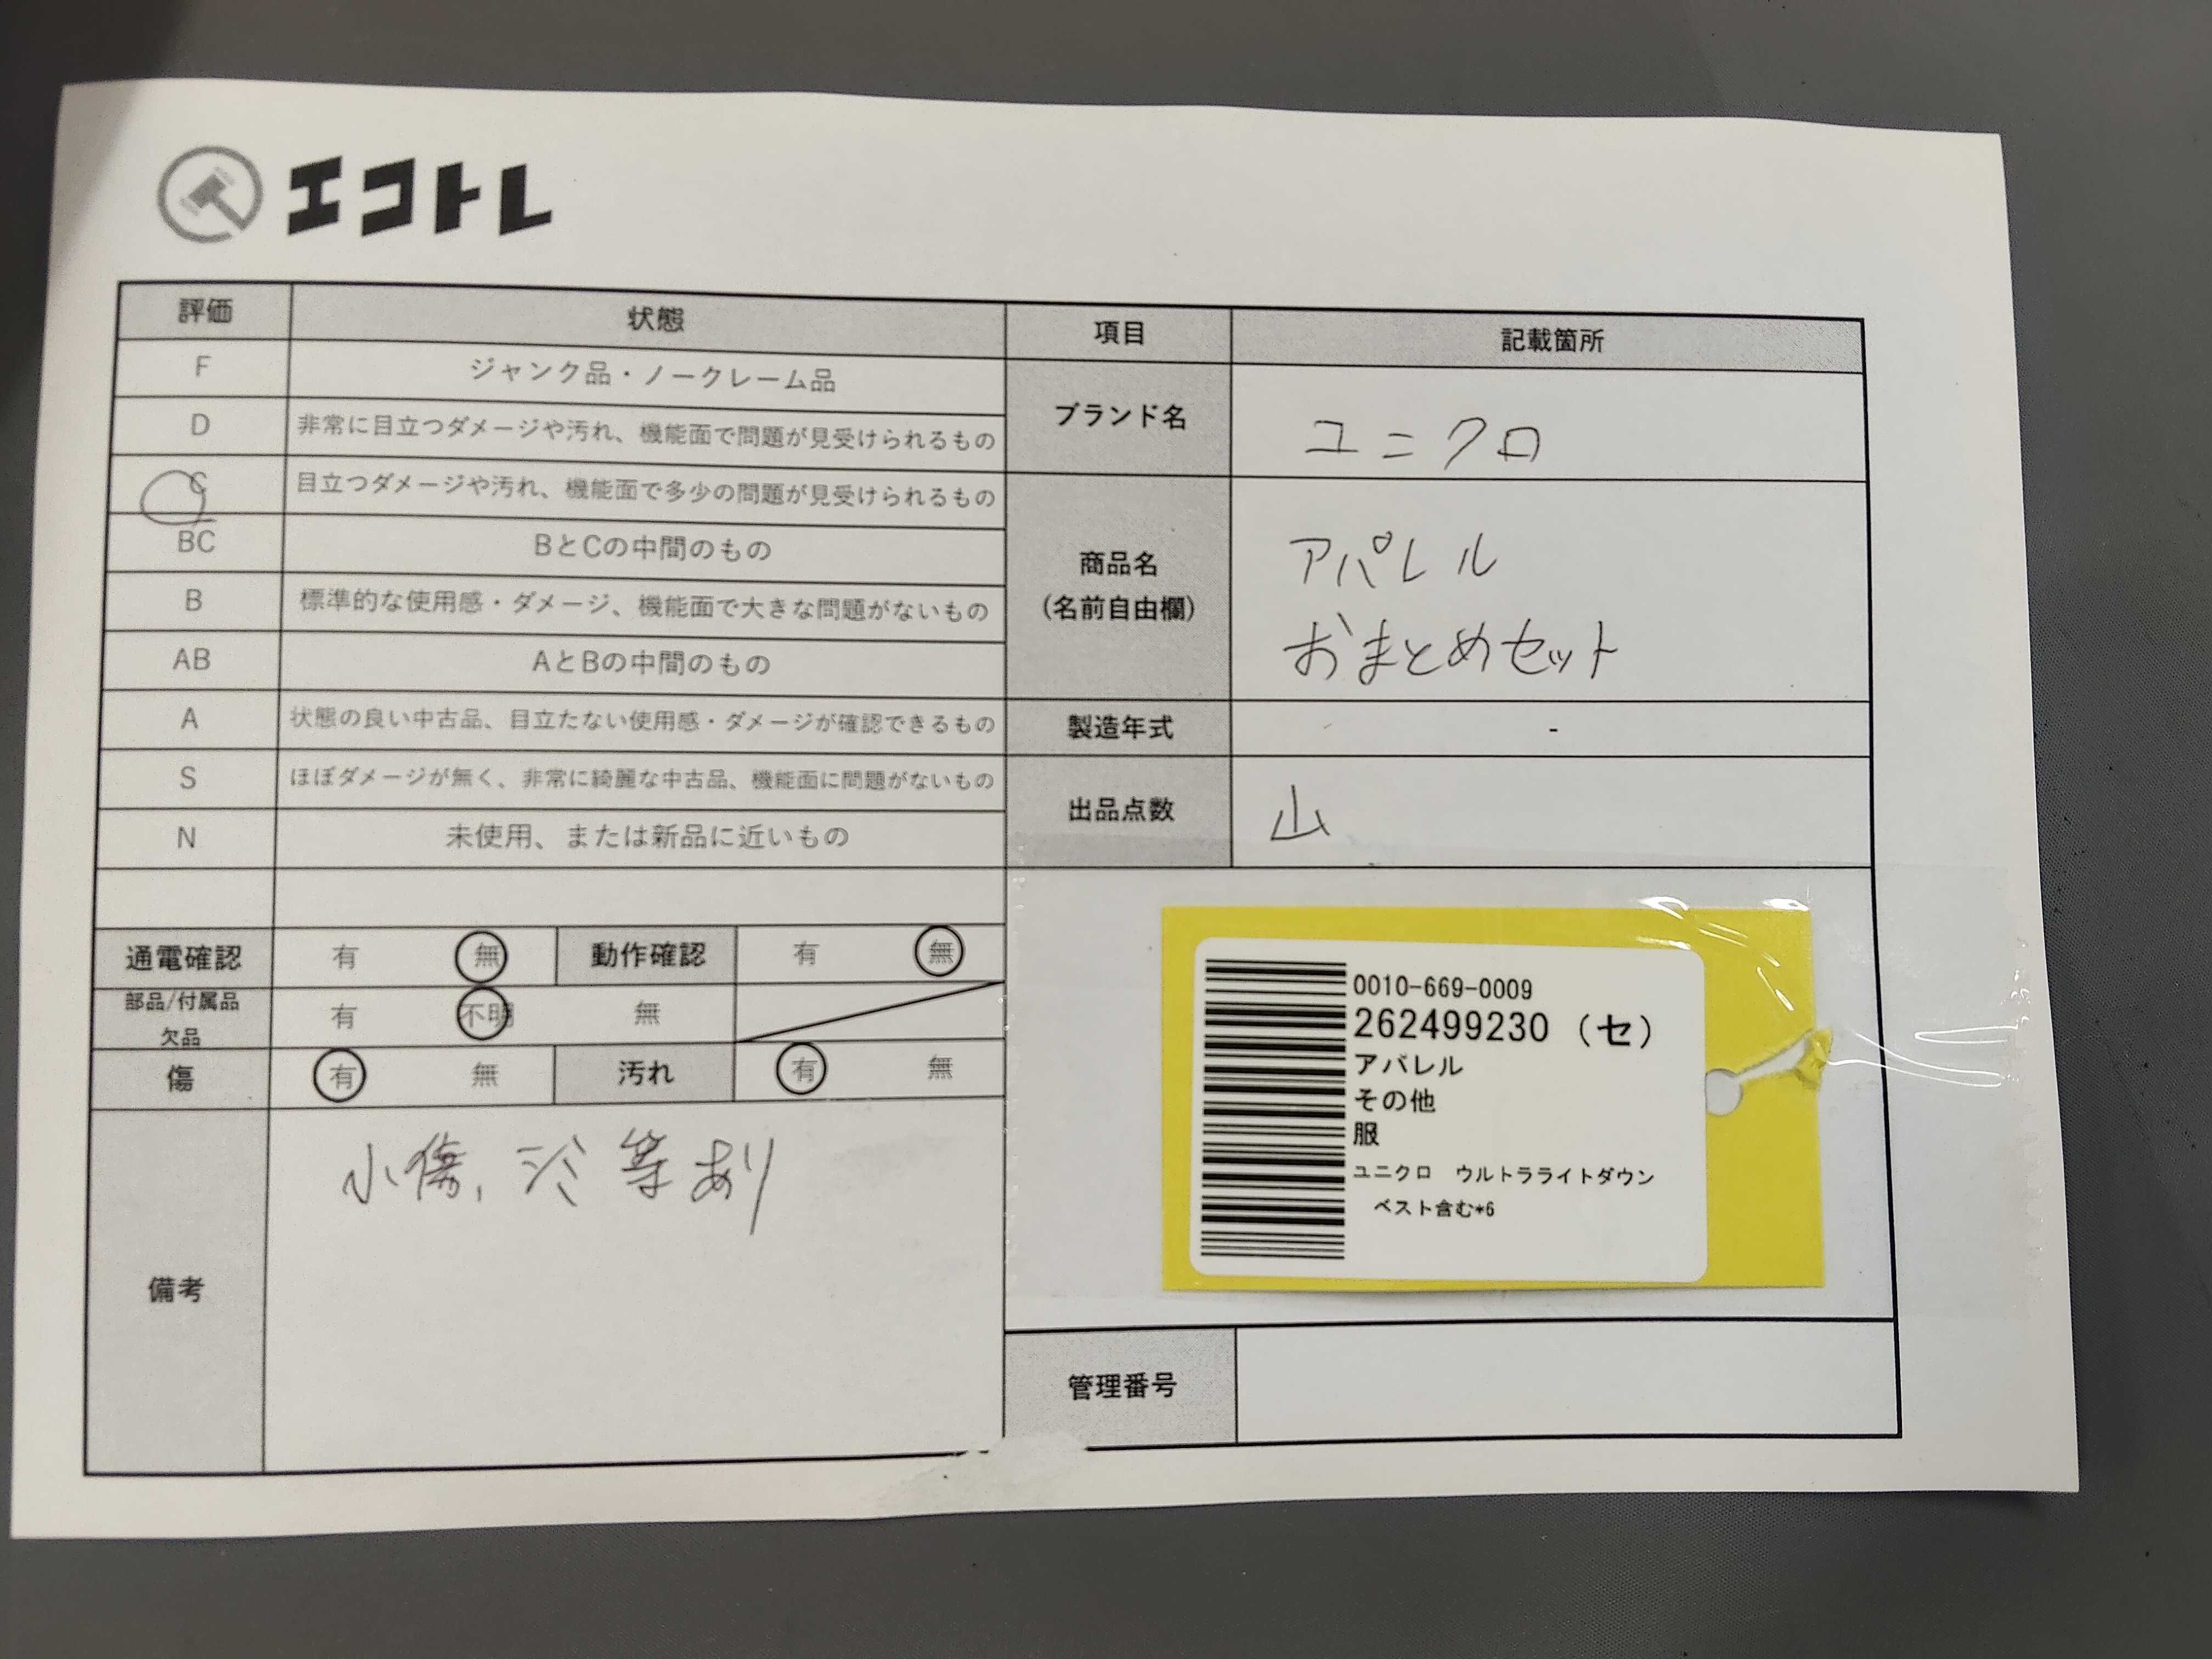 エコトレ
評価 状態 項目 記載箇所
F ジャンク品・ノークレーム品
D 非常に目立つダメージや汚れ、機能面で問題が見受けられるもの
C 目立つダメージや汚れ、機能面で多少の問題が見受けられるもの
BC BとCの中間のもの
B 標準的な使用感・ダメージ、機能面で大きな問題がないもの
AB AとBの中間のもの
A 状態の良い中古品、目立たない使用感・ダメージが確認できるもの
S ほぼダメージが無く、非常に綺麗な中古品、機能面に問題がないもの
N 未使用、または新品に近いもの
ブランド名 ユニクロ
商品名
(名前自由欄)
アパレル
おまとめセット
製造年式 -
出品点数 山
通電確認 有 無 動作確認 有 無
部品/付属品
欠品
有 不明 無
傷 有 無 汚れ 有 無
備考
小傷、シミ等あり
0010-669-0009
262499230 (セ)
アパレル
その他
服
ユニクロ ウルトラライトダウン
ベスト含む*6
管理番号